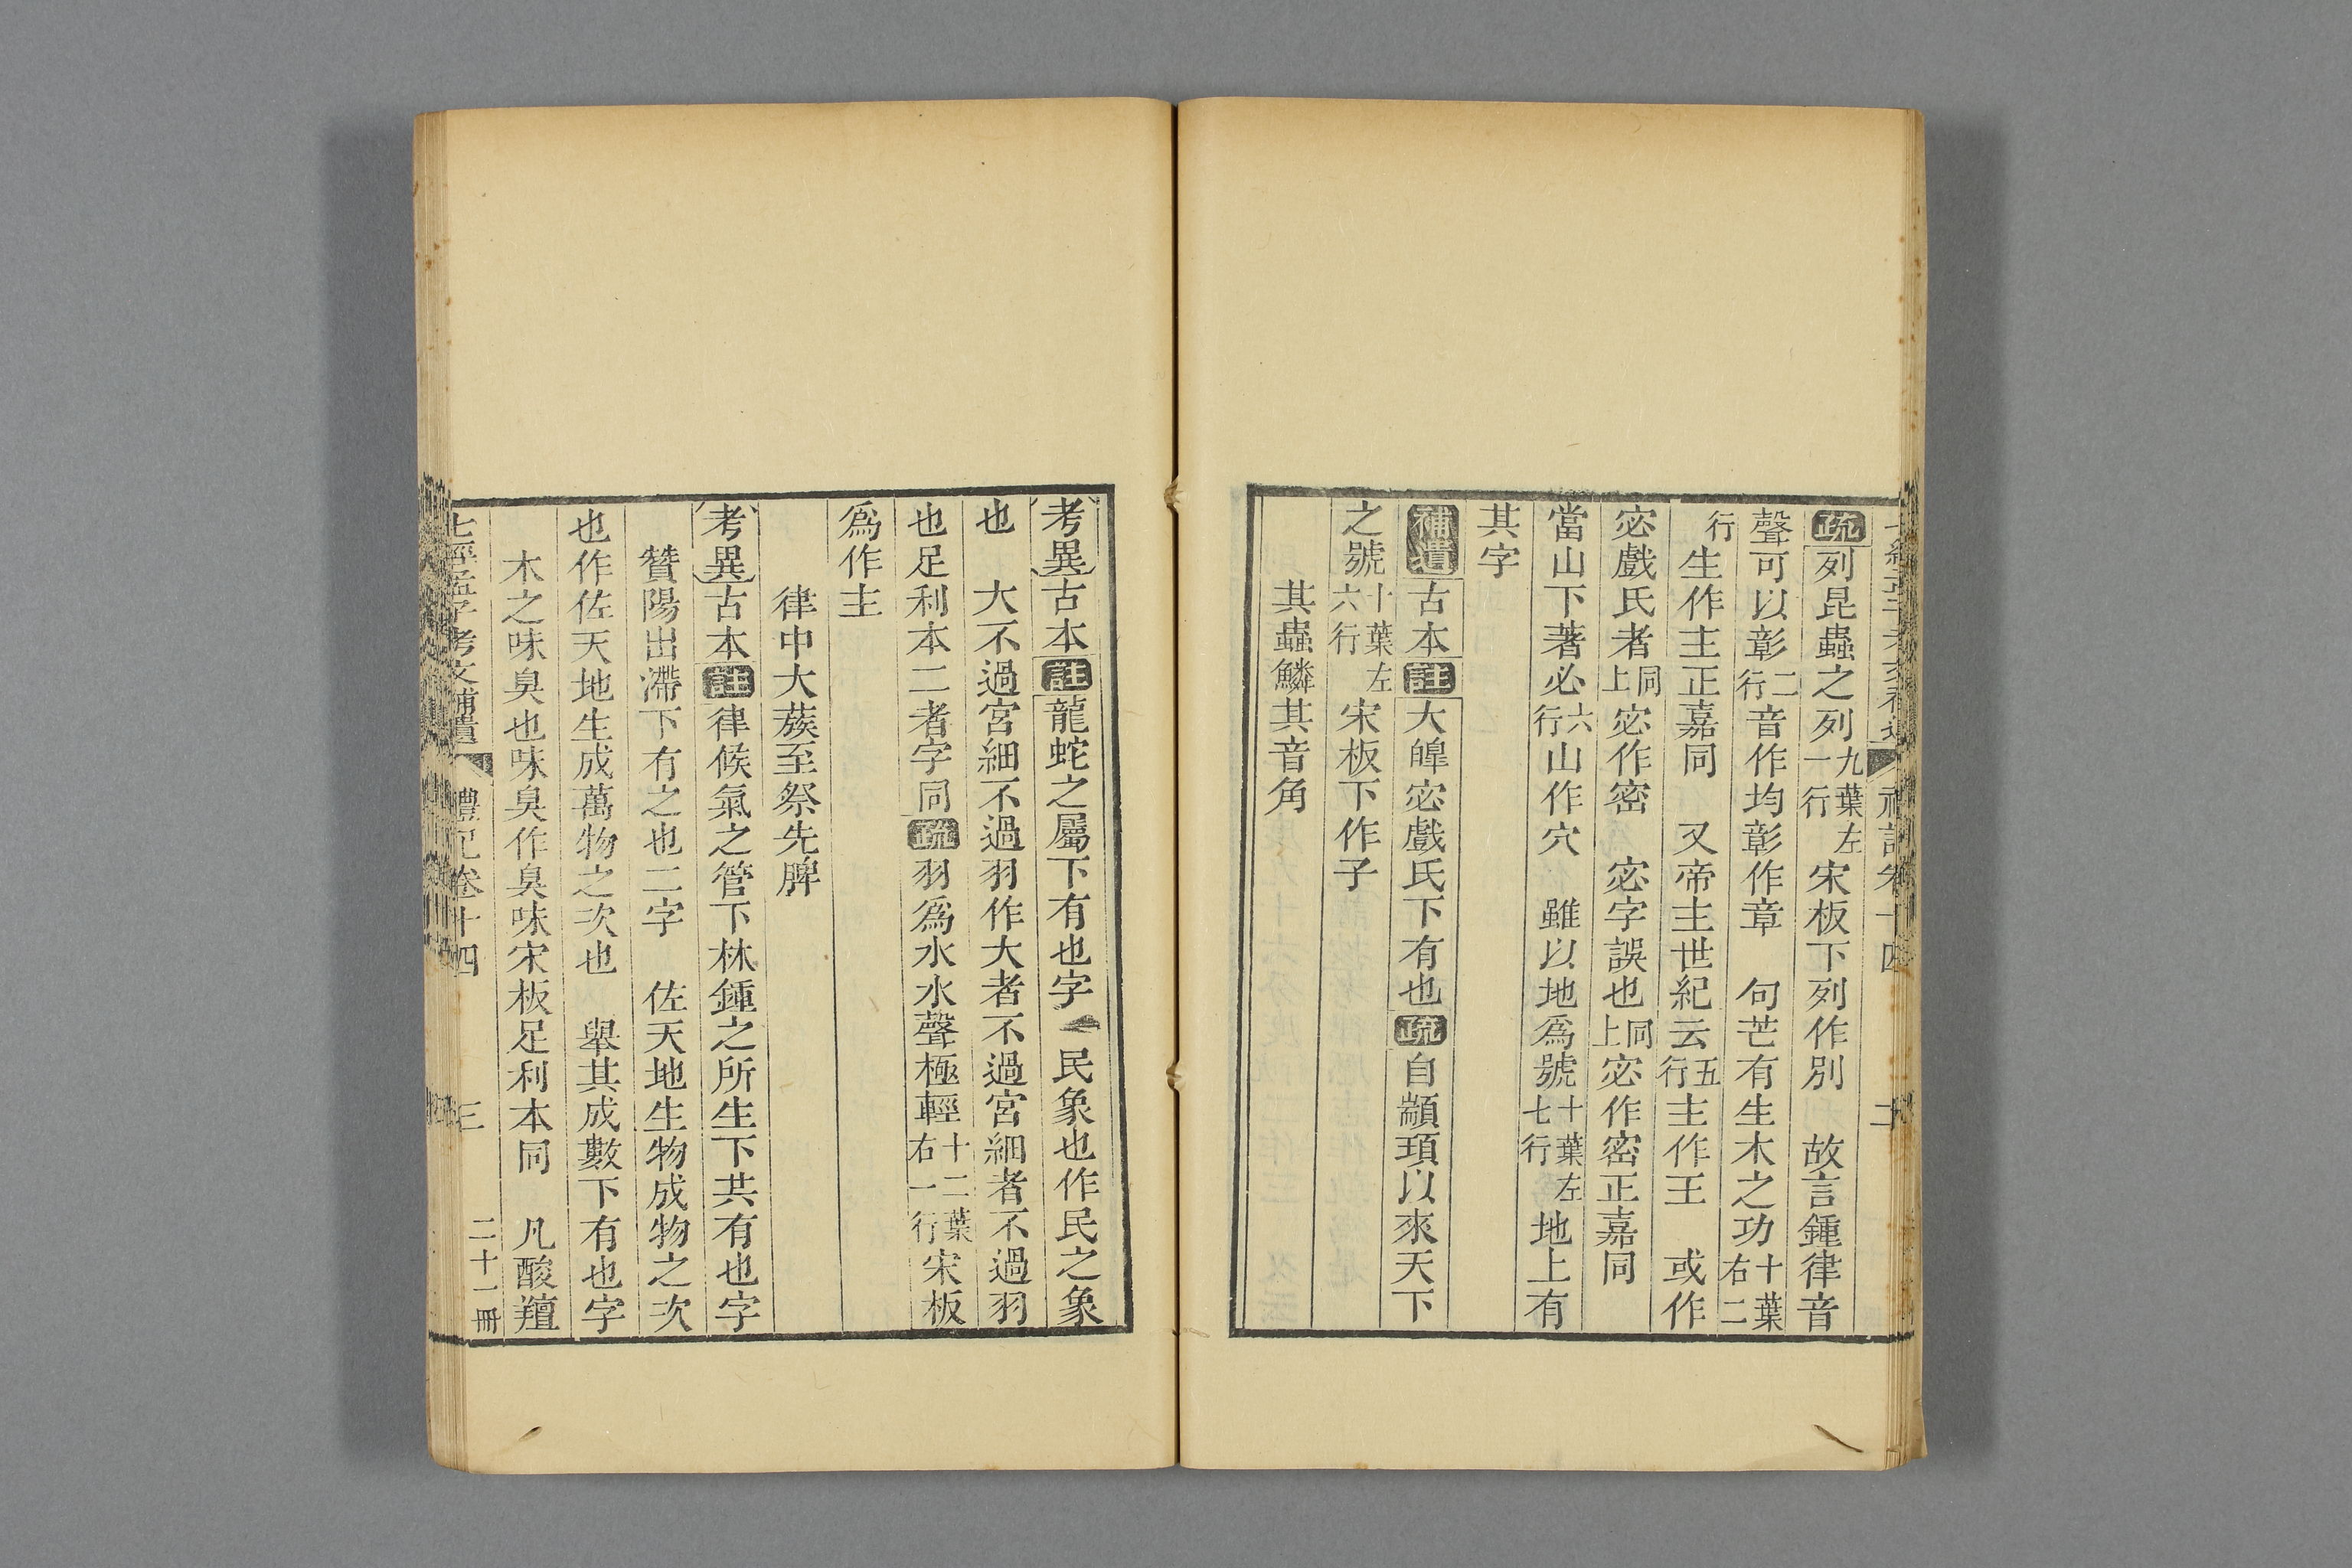 疏列昆蟲之列九葉左一行宋板下列作別　故言鍾律音
聲可以彰二行音作均彰作章　句芒有生木之功十葉右二
行生作主正嘉同　又帝主世紀云五行主作王　或作
宓戲氏者同上宓作密　宓字誤也同上宓作密正嘉同
當山下著必六行山作穴　雖以地爲號十葉左七行地上有
其字
補遺古本註大皥宓戲氏下有也疏自顓頊以來天下
之號十葉左六行宋板下作子
其蟲鱗其音角
考異古本註龍蛇之屬下有也字　民象也作民之象
也　大不過宮細不過羽作大者不過宮細者不過羽
也足利本二者字同疏羽爲水水聲極輕十二葉右一行宋板
爲作主
律中大蔟至祭先脾
考異古本註律候氣之管下林鍾之所生下共有也字
贊陽出滯下有之也二字　佐天地生物成物之次
也作佐天地生成萬物之次也　舉其成數下有也字
木之味臭也味臭作臭味宋板足利本同　凡酸羶
七經孟子考文補遺　禮記卷十四　三　二十一冊